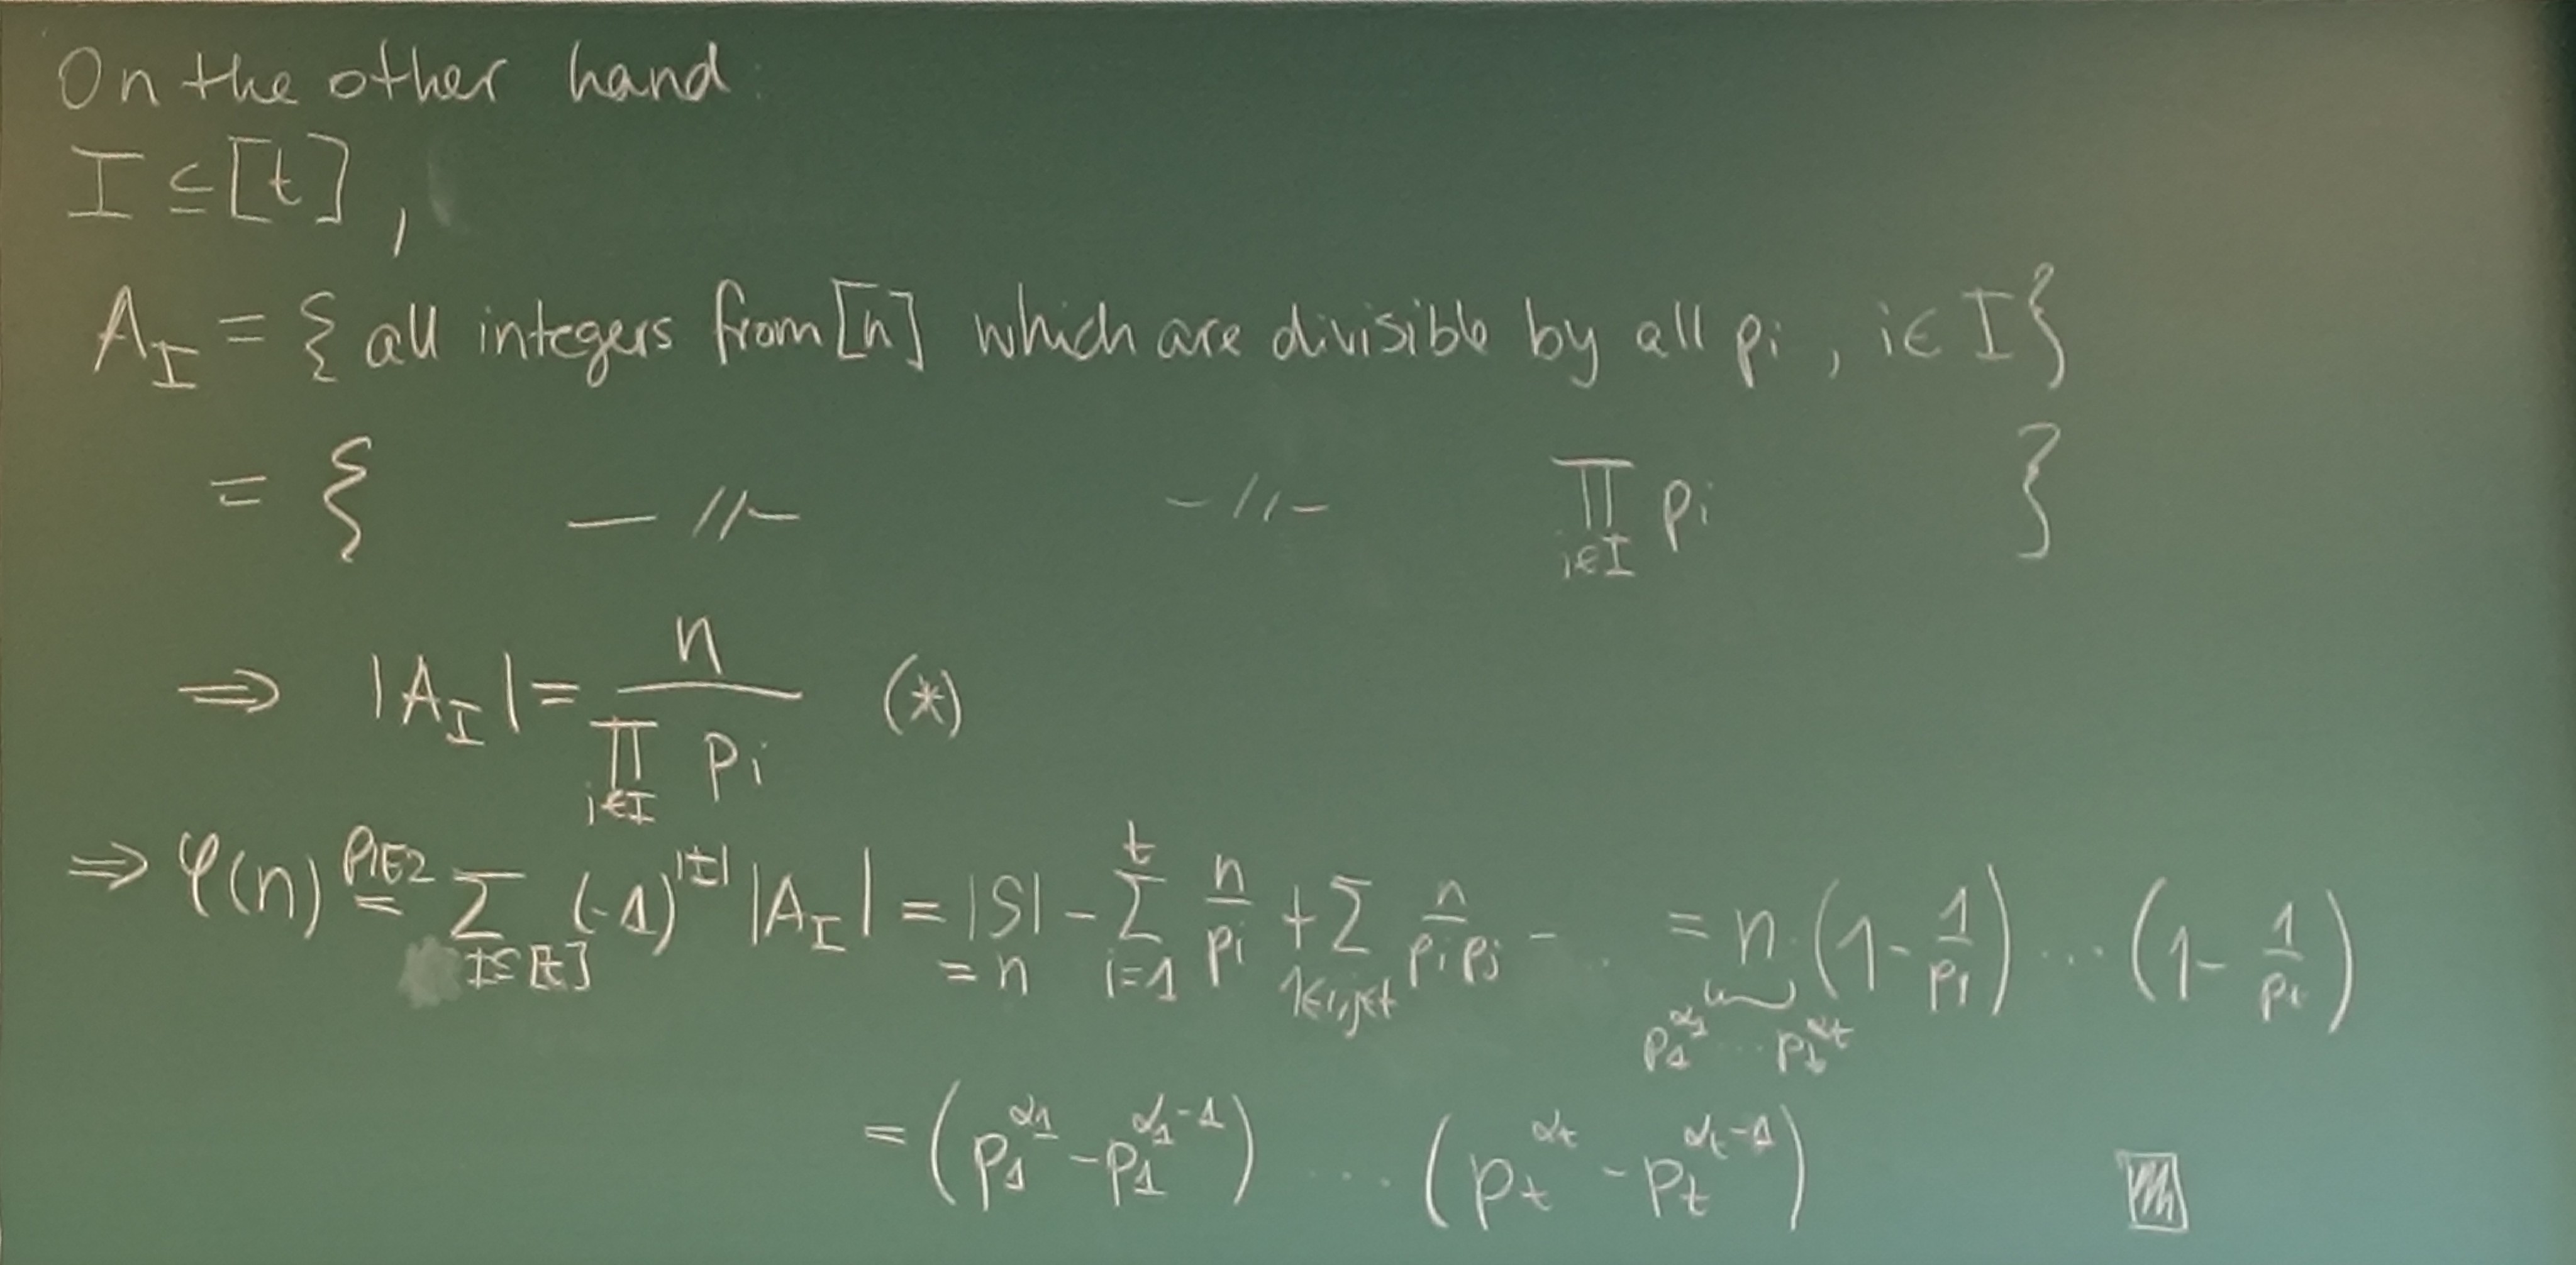 On the other hand:
I ⊆ [t],
A_I = { all integers from [n] which are divisible by all p_i, i ∈ I }
= { —//— —//— ∏_{i∈I} p_i }
⇒ |A_I| = n / ∏_{i∈I} p_i (*)
⇒ φ(n) =^{PIE2} ∑_{I⊆[t]} (-1)^{|I|} |A_I| = |S| - ∑_{i=1}^{t} n/p_i + ∑_{1≤i,j≤t} n/(p_i p_j) - .. = n · (1 - 1/p_1) ... (1 - 1/p_t)
= n
p_1^{α_1} ... p_t^{α_t}
= (p_1^{α_1} - p_1^{α_1-1}) .... (p_t^{α_t} - p_t^{α_t-1})